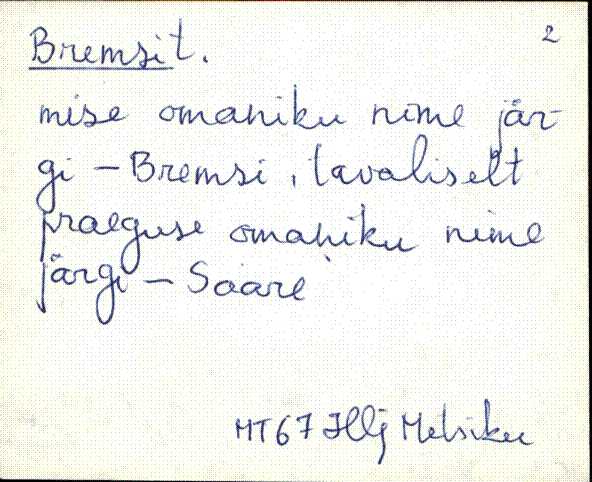 2
Bremsit.
mise omaniku nime jär-
gi - Bremsi, tavaliselt
praeguse omaniku nime
järgi - Saare
MT 67 Illj Metsiku